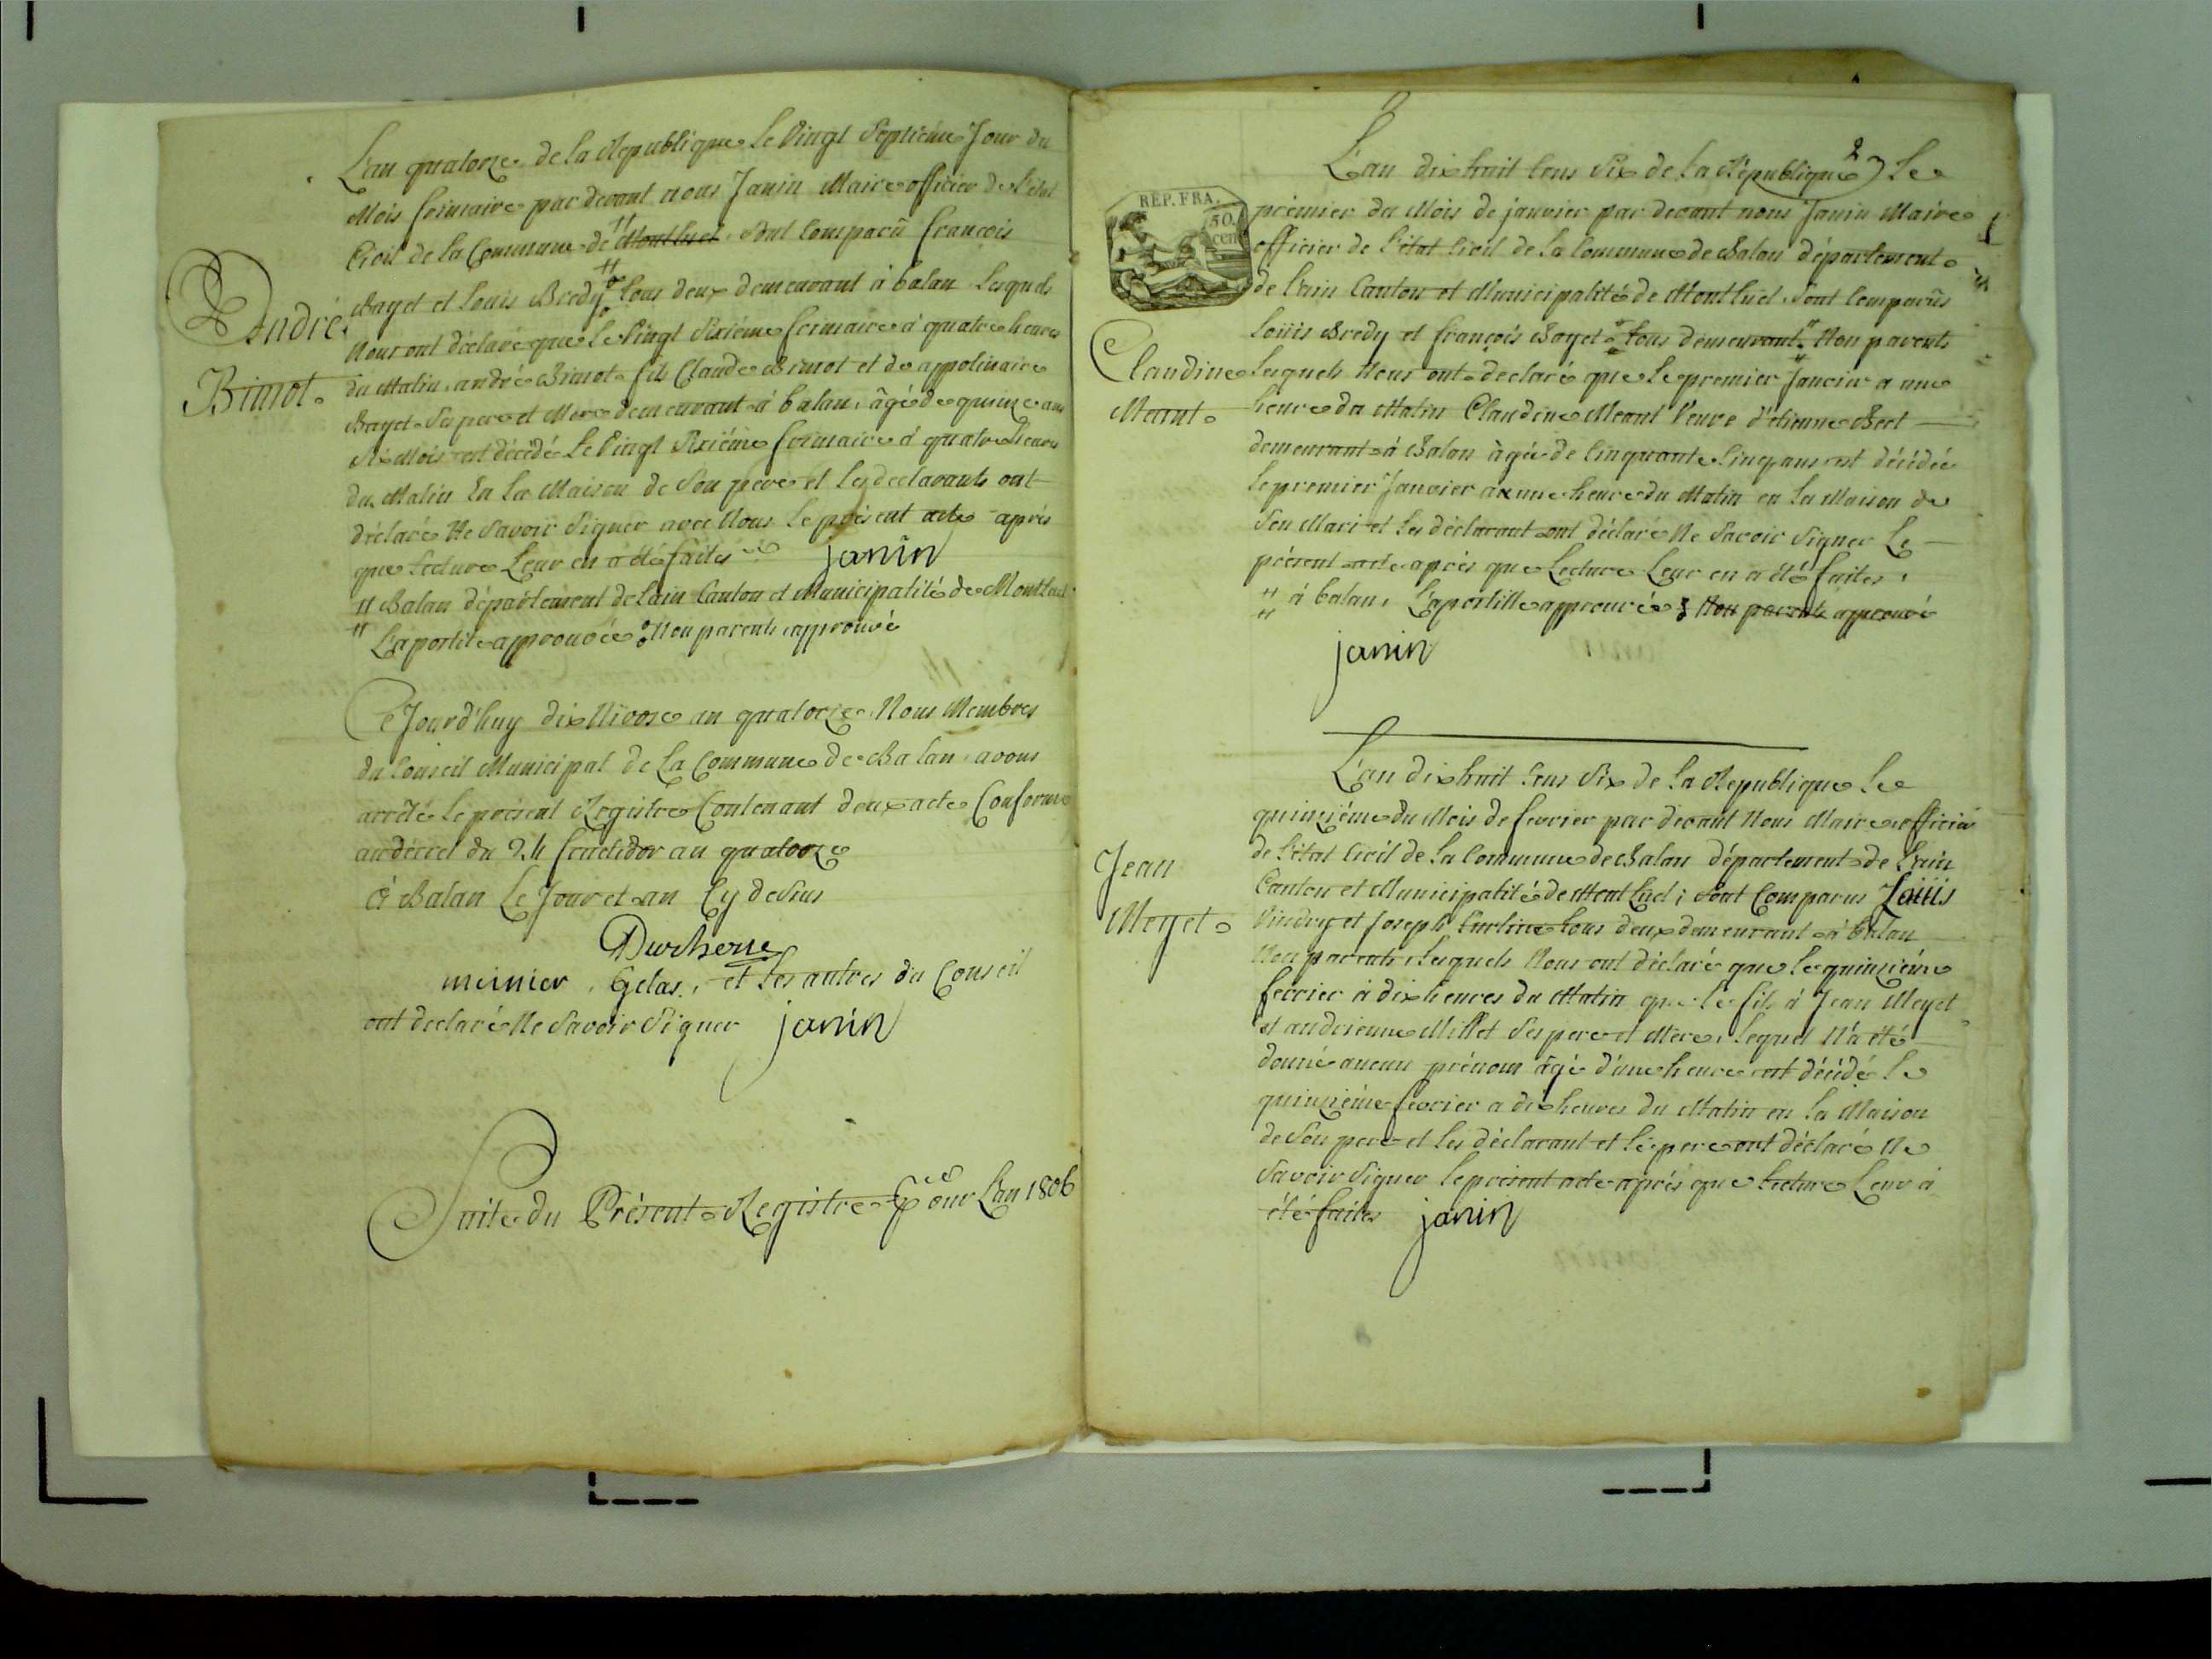 L'an quatorze de la Republique le Vingt Septieme Jour du
Mois frimaire par devant nous Janin Maire officier de l'état
Civil de la Commune de Montluel, Sont Comparû françois
Bayet et Louis Bredy tous deux demeurant à balan lesquels
André
Nous ont déclaré que le Vingt Sixiéme frimaire à quatre heures
Bimot
du Matin andré Bimot fils Claude Bimot et de appolinaire
Bayet Ses pere et Mere demeurant à balan, âgé de quinze ans
Six Mois est décédé le Vingt Sixiéme frimaire à quatre heures
du Matin En la Maison de Son pere et les declarants ont
déclaré Ne Savoir Signer avec Nous le présent acte après
que lecture Leur en a été faites janin
# Balan département de l'ain Canton et Municipalité de Montluel
# L'apostile approuvée Non parents approuvé
Ce Jourd'huy dix Nivose an quatorze Nous Membres
du Conseil Municipal de La Commune de Balan avons
arrété le présent Registre Contenant deux acte Conforme
au décret du 24 fructidor an quatorze
à Balan Le Jour et an Cy desus
Duchesne
meinier, Gelas, et les autres du Conseil
ont declaré Ne Savoir Signer janin
Suite du Présent Registre Pour L'an 1806
2
L'an dix huit Cens Six de la République Le
REP. FRA.
50.
cen
premier du Mois de janvier par devant nous Janin Maire
officier de l'état Civil de la Commune de Balan département
de l'ain Canton et Municipalité de Montluel Sont Comparûs
Louis Bredy et françois Bayet tous demeurant Non parents
Claudine lesquels Nous ont déclaré que le premier Janvier a une
Meant
heure du Matin Claudine Meant Veuve d'etienne Bert
demeurant à Balan âgée de Cinquante Cinq ans est décédée
le premier Janvier a une heure du Matin en la Maison de
Son Mari et les déclarant ont déclaré Ne Savoir Signer Le
présent acte après que Lecture Leur en a été faites,
# à balan, L'apostille approuvée Non parents approuvé
janin
L'an dix huit Cens Six de la Republique Le
quinziéme du Mois de fevrier par devant Nous Maire officier
de l'état Civil de la Commune de Balan département de l'ain
Jean
Canton et Municipalité de Mont Luel; Sont Comparus Louis
Meyet
et Joseph tous deux demeurant à balan
Non parents, lesquels Nous ont déclaré que le quinziéme
fevrier à dix heures du Matin que le fils à Jean Meyet
et andrienne Millet Ses pere et Mere, lequel N'a été
donné aucun prénom âgé d'une heure est décédé le
quinziéme fevrier a dix heures du Matin en la Maison
de Son pere et les déclarant et le pere ont déclaré Ne
Savoir Signer le présent acte après que lecture Leur à
été faites janin